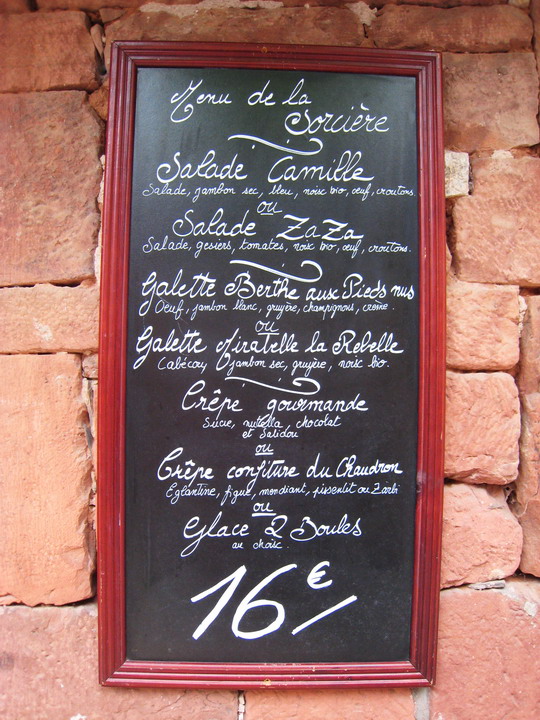 Menu de la
Sorcière
Salade Camille
Salade, jambon sec, bleu, noix bio, œuf, croutons.
ou
Salade ZaZa
Salade, gesiers, tomates, noix bio, œuf, croutons.
Galette Berthe aux Pieds nus
Oeuf, jambon blanc, gruyère, champignons, crème.
ou
Galette Mirabelle la Rebelle
Cabécou, jambon sec, gruyère, noix bio.
Crêpe gourmande
Sucre, nutella, chocolat
et Salidou
ou
Crêpe confiture du Chaudron
Eglantine, figue, mendiant, pissenlit ou Zarbi
ou
Glace 2 Boules
au choix.
16€/